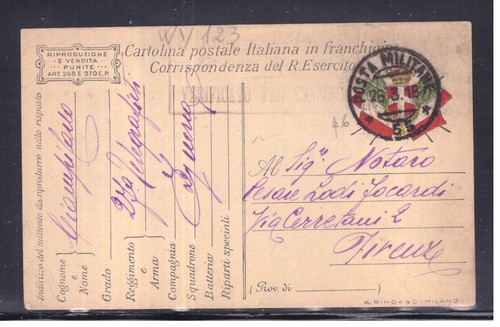 WW 123
RIPRODUZIONE
E VENDITA
PUNITE
ART. 268 E 270 C.P.
Cartolina postale Italiana in franchigia
Corrispondenza del R. Esercito
VERIFICATO PER
POSTA MILITARE
55
Indirizzo del mittente da riprodurre nelle risposte
Cognome e Nome
Grado
Reggimento e Arma
Compagnia
Squadrone
Batteria
Riparti speciali
Al Sigr Notaro
Cesare Lodi Focardi
Via Cerretani 2
Firenze
(Prov. di )
A. BINDA & C.I - MILANO